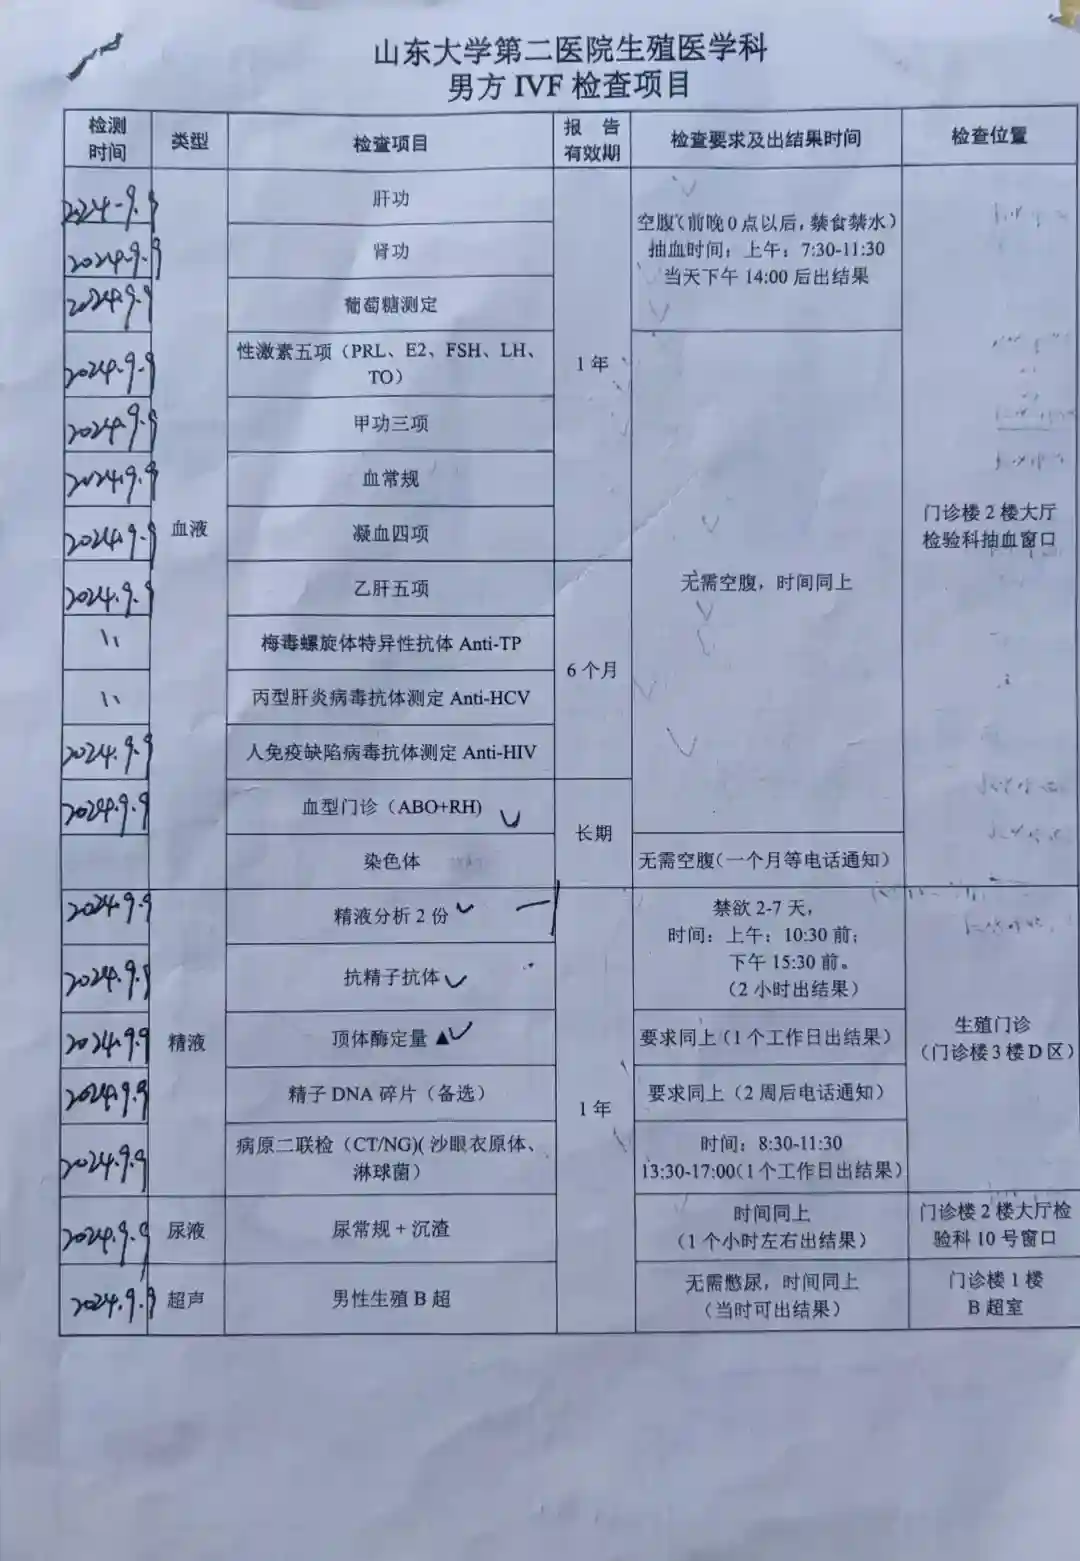 山东大学第二医院生殖医学科
男方 IVF 检查项目
检测时间 类型 检查项目 报告有效期 检查要求及出结果时间 检查位置
2024-9.9 血液 肝功 1年 空腹（前晚0点以后，禁食禁水）
抽血时间：上午：7:30-11:30
当天下午 14:00 后出结果
门诊楼 2 楼大厅
检验科抽血窗口
2024.9.9 肾功
2024.9.9 葡萄糖测定
2024.9.9 性激素五项（PRL、E2、FSH、LH、
TO）
无需空腹，时间同上
2024.9.9 甲功三项
2024.9.9 血常规
2024.9.9 凝血四项
2024.9.9 乙肝五项 6个月
〃 梅毒螺旋体特异性抗体 Anti-TP
〃 丙型肝炎病毒抗体测定 Anti-HCV
2024.9.9 人免疫缺陷病毒抗体测定 Anti-HIV
2024.9.9 血型门诊（ABO+RH) 长期
染色体 无需空腹（一个月等电话通知）
2024.9.9 精液 精液分析 2 份 1年 禁欲 2-7 天，
时间：上午：10:30 前；
下午 15:30 前。
（2 小时出结果）
生殖门诊
（门诊楼 3 楼 D 区）
2024.9.9 抗精子抗体
2024.9.9 顶体酶定量▲ 要求同上（1 个工作日出结果）
2024.9.9 精子 DNA 碎片（备选） 要求同上（2 周后电话通知）
2024.9.9 病原二联检（CT/NG)( 沙眼衣原体、
淋球菌）
时间：8:30-11:30
13:30-17:00（1 个工作日出结果）
2024.9.9 尿液 尿常规 + 沉渣 时间同上
（1 个小时左右出结果）
门诊楼 2 楼大厅检
验科 10 号窗口
2024.9.9 超声 男性生殖 B 超 无需憋尿，时间同上
（当时可出结果）
门诊楼 1 楼
B 超室